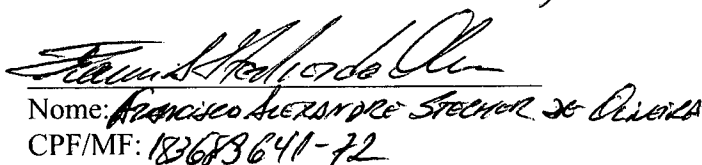 Nome: FRANCISCO ALEXANDRE STECHER DE OLIVEIRA
CPF/MF: 183689641-72